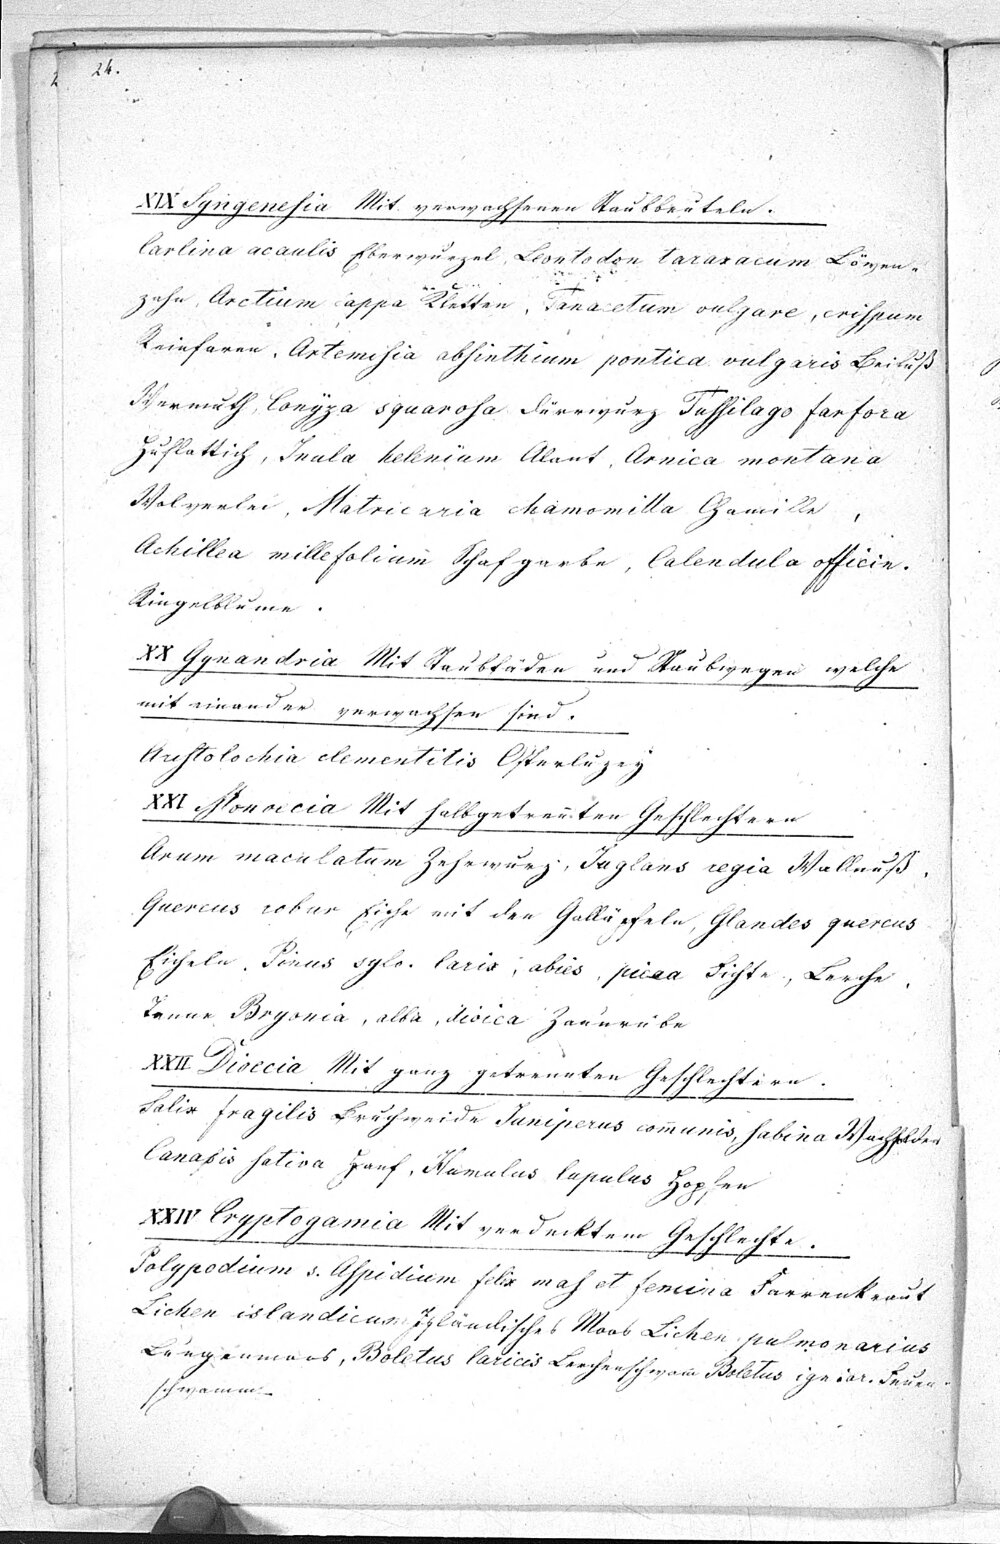 24.
XIX Syngenesia Mit verwachsenen Staubbeuteln.
Carlina acaulis Eberwurzel, Leontodon taraxacum Löwen-
zahn, Arctium lappa Kletten, Tanacetum vulgare, crispum
Reinfaren, Artemisia absinthium pontica vulgaris Beifuß
Wermuth, Conyza squarosa Dürrwurz Tussilago farfora
Huflattich, Inula helenium Alant, Arnica montana
Wolverlei, Matricaria chamomilla Chamille,
Achillea millefolium Schafgarbe, Calendula officin.
Ringelblume.
XX Gynandria Mit Staubfäden und Staubwegen welche
mit einander verwachsen sind.
Aristolochia clementitis Osterluzey
XXI Monoecia Mit halbgetrenten Geschlechtern
Arum maculatum Zehrwurz, Juglans regia Wallnuß,
Quercus robur Eiche mit den Galläpfeln, Glandes quercus
Eicheln, Pinus sylv. larix, abies, picea Fichte, Lerche,
Tanne Bryonia, alba, dioica Zaunrübe
XXII Dioecia Mit ganz getrennten Geschlechtern.
Salix fragilis Bruchweide Juniperus comunis, sabina Wachholder
Canabis sativa Hanf, Humulus lupulus Hopfen
XXIV Cryptogamia Mit verdecktem Geschlechte.
Polypodium s. Aspidium felix mas et femina Farrenkraut
Lichen islandicum Isländisches Moos Lichen pulmonarius
Lungenmoos, Boletus laricis Lerchenschwam Boletus igniar. Feuer-
schwamm